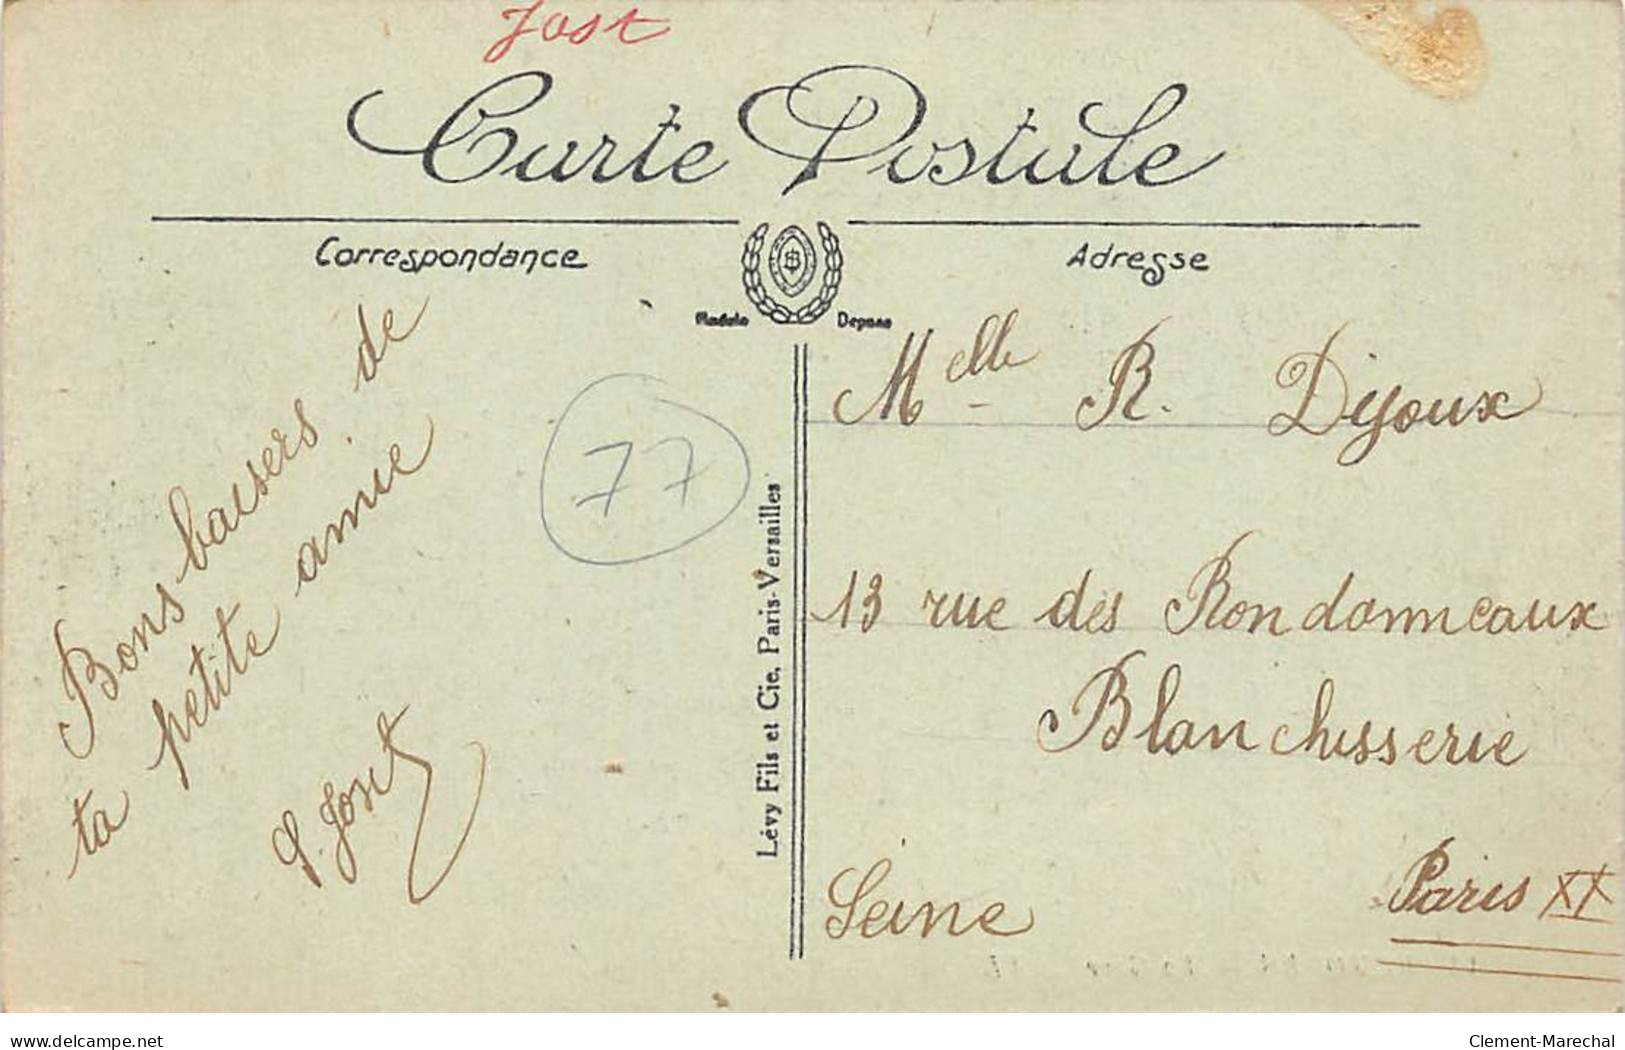 Jost
Carte Postale
Correspondance
Adresse
Modèle Déposé
Bons baisers de
ta petite amie
S. Jost
77
Lévy Fils et Cie, Paris-Versailles
Melle R. Dijoux
13 rue des Rondonneaux
Blanchisserie
Paris XX
Seine
www.delcampe.net
Clement-Marechal